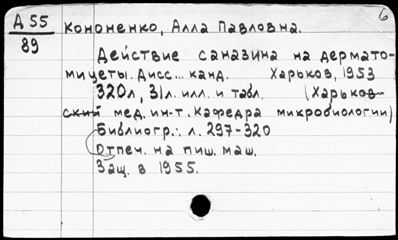 6
Д 55
89
Кононенко, Алла Павловна.
Действие саназина на дермато-
мицеты. Дисс... канд. Харьков, 1953
320л, 31л. илл. и табл. (Харьков-
ский мед. ин-т. Кафедра микробиологии)
Библиогр.: л. 297-320
Отпеч. на пиш. маш.
Защ. в 1955.